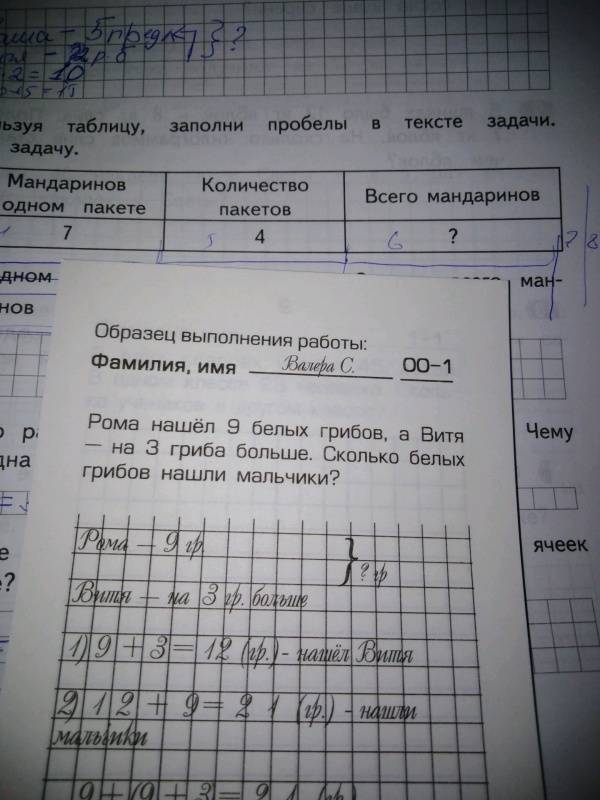 5 предк } ?
2 = 10
заполни пробелы в тексте задачи.
задачу.
Мандаринов
одном пакете
Количество
пакетов
Всего мандаринов
7
4
?
5
6
7
8
одном
ман-
Образец выполнения работы:
Фамилия, имя Валера С. 00–1
Рома нашёл 9 белых грибов, а Витя
— на 3 гриба больше. Сколько белых
грибов нашли мальчики?
Чему
ячеек
Рома — 9 гр.
} ? гр
Витя — на 3 гр. больше
1) 9 + 3 = 12 (гр.) - нашёл Витя
2) 12 + 9 = 21 (гр.) - нашли
мальчики
9 + (9 + 3) = 21 (гр.)